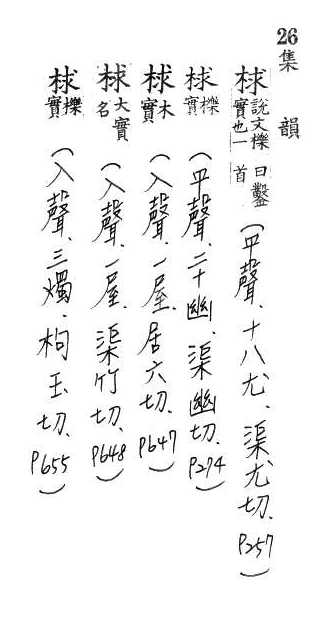 26集韻
梂說文櫟實也一曰鑿首(平聲、十八尤、渠尤切、P257)
梂櫟實(平聲、二十幽、渠幽切、P274)
梂木實(入聲、一屋、居六切、P647)
梂大實名(入聲、一屋、渠竹切、P648)
梂櫟實(入聲、三燭、枸玉切、P655)